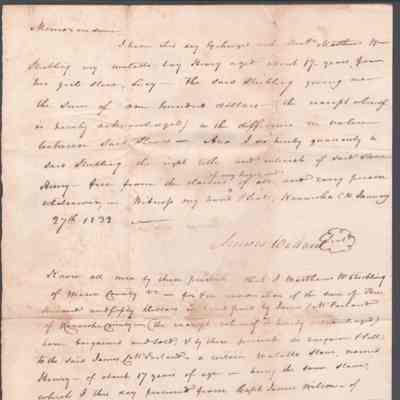 Memorandum
I have this day Exchanged with Matthew W
Stribling my mulatto boy Henry aged about 17 years, for
his girl slave, Lucy — The said Stribling giving me
the Sum of one hundred dollars — (the receipt whereof
is hereby acknowledged) as the difference in value
between said Slaves — And I do hereby guaranty to
said Stribling the right title and interest of said Slave
Henry — free from the claims of all and every person
of my heirs and
whatsoever — Witness my hand & Seal, Kanawha CH January
27th 1832 —
James Wilson Seal
Know all men by these presents that I Matthew W Stribling
of Mason County Va — for & in consideration of the sum of Three
hundred and fifty dollars in hand paid by James C McFarland
of Kanawha County — (the receipt whereof is hereby acknowledged)
have bargained and sold, & by these presents do bargain & sell
to the said James C McFarland a certain Mulatto Slave named
Henry — of about 17 years of age — being the same slave,
which I this day procured from Capt James Wilson of